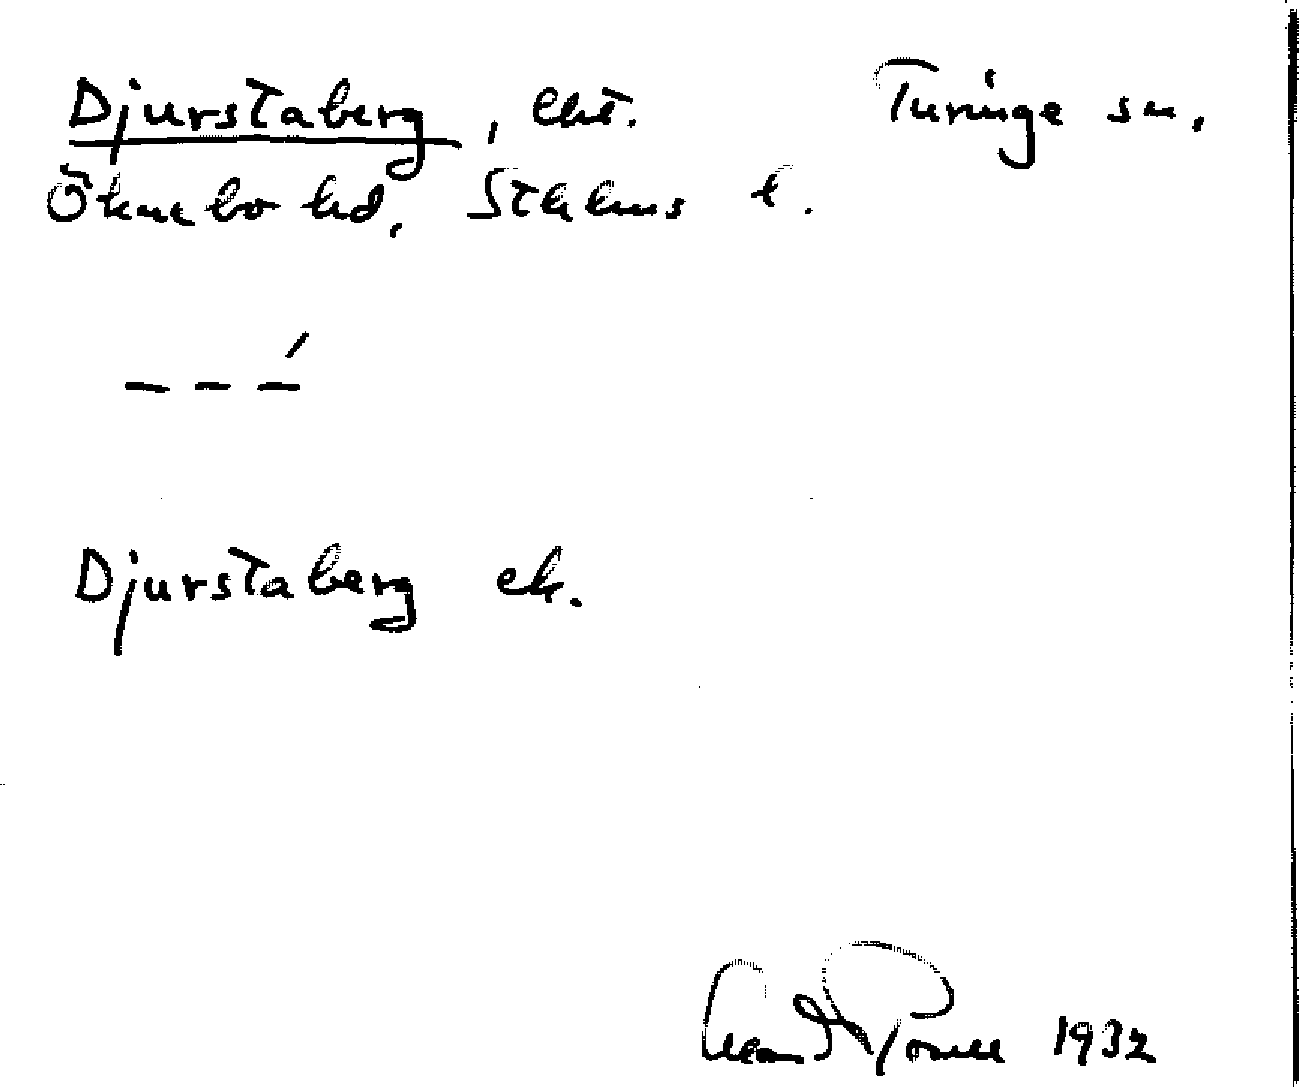 Djurstaberg, lht. Turinge sn.
Öknebo hd, Sthlms l.
– – –́
Djurstaberg ek.
1932